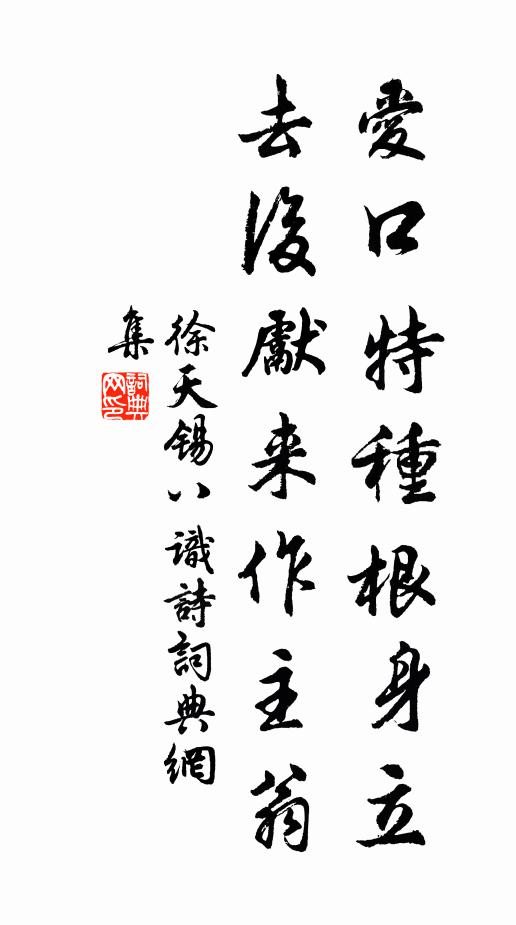 愛口特種根身立
去後獻来作主翁
徐天錫八識詩詞典網
集
詞典
网印